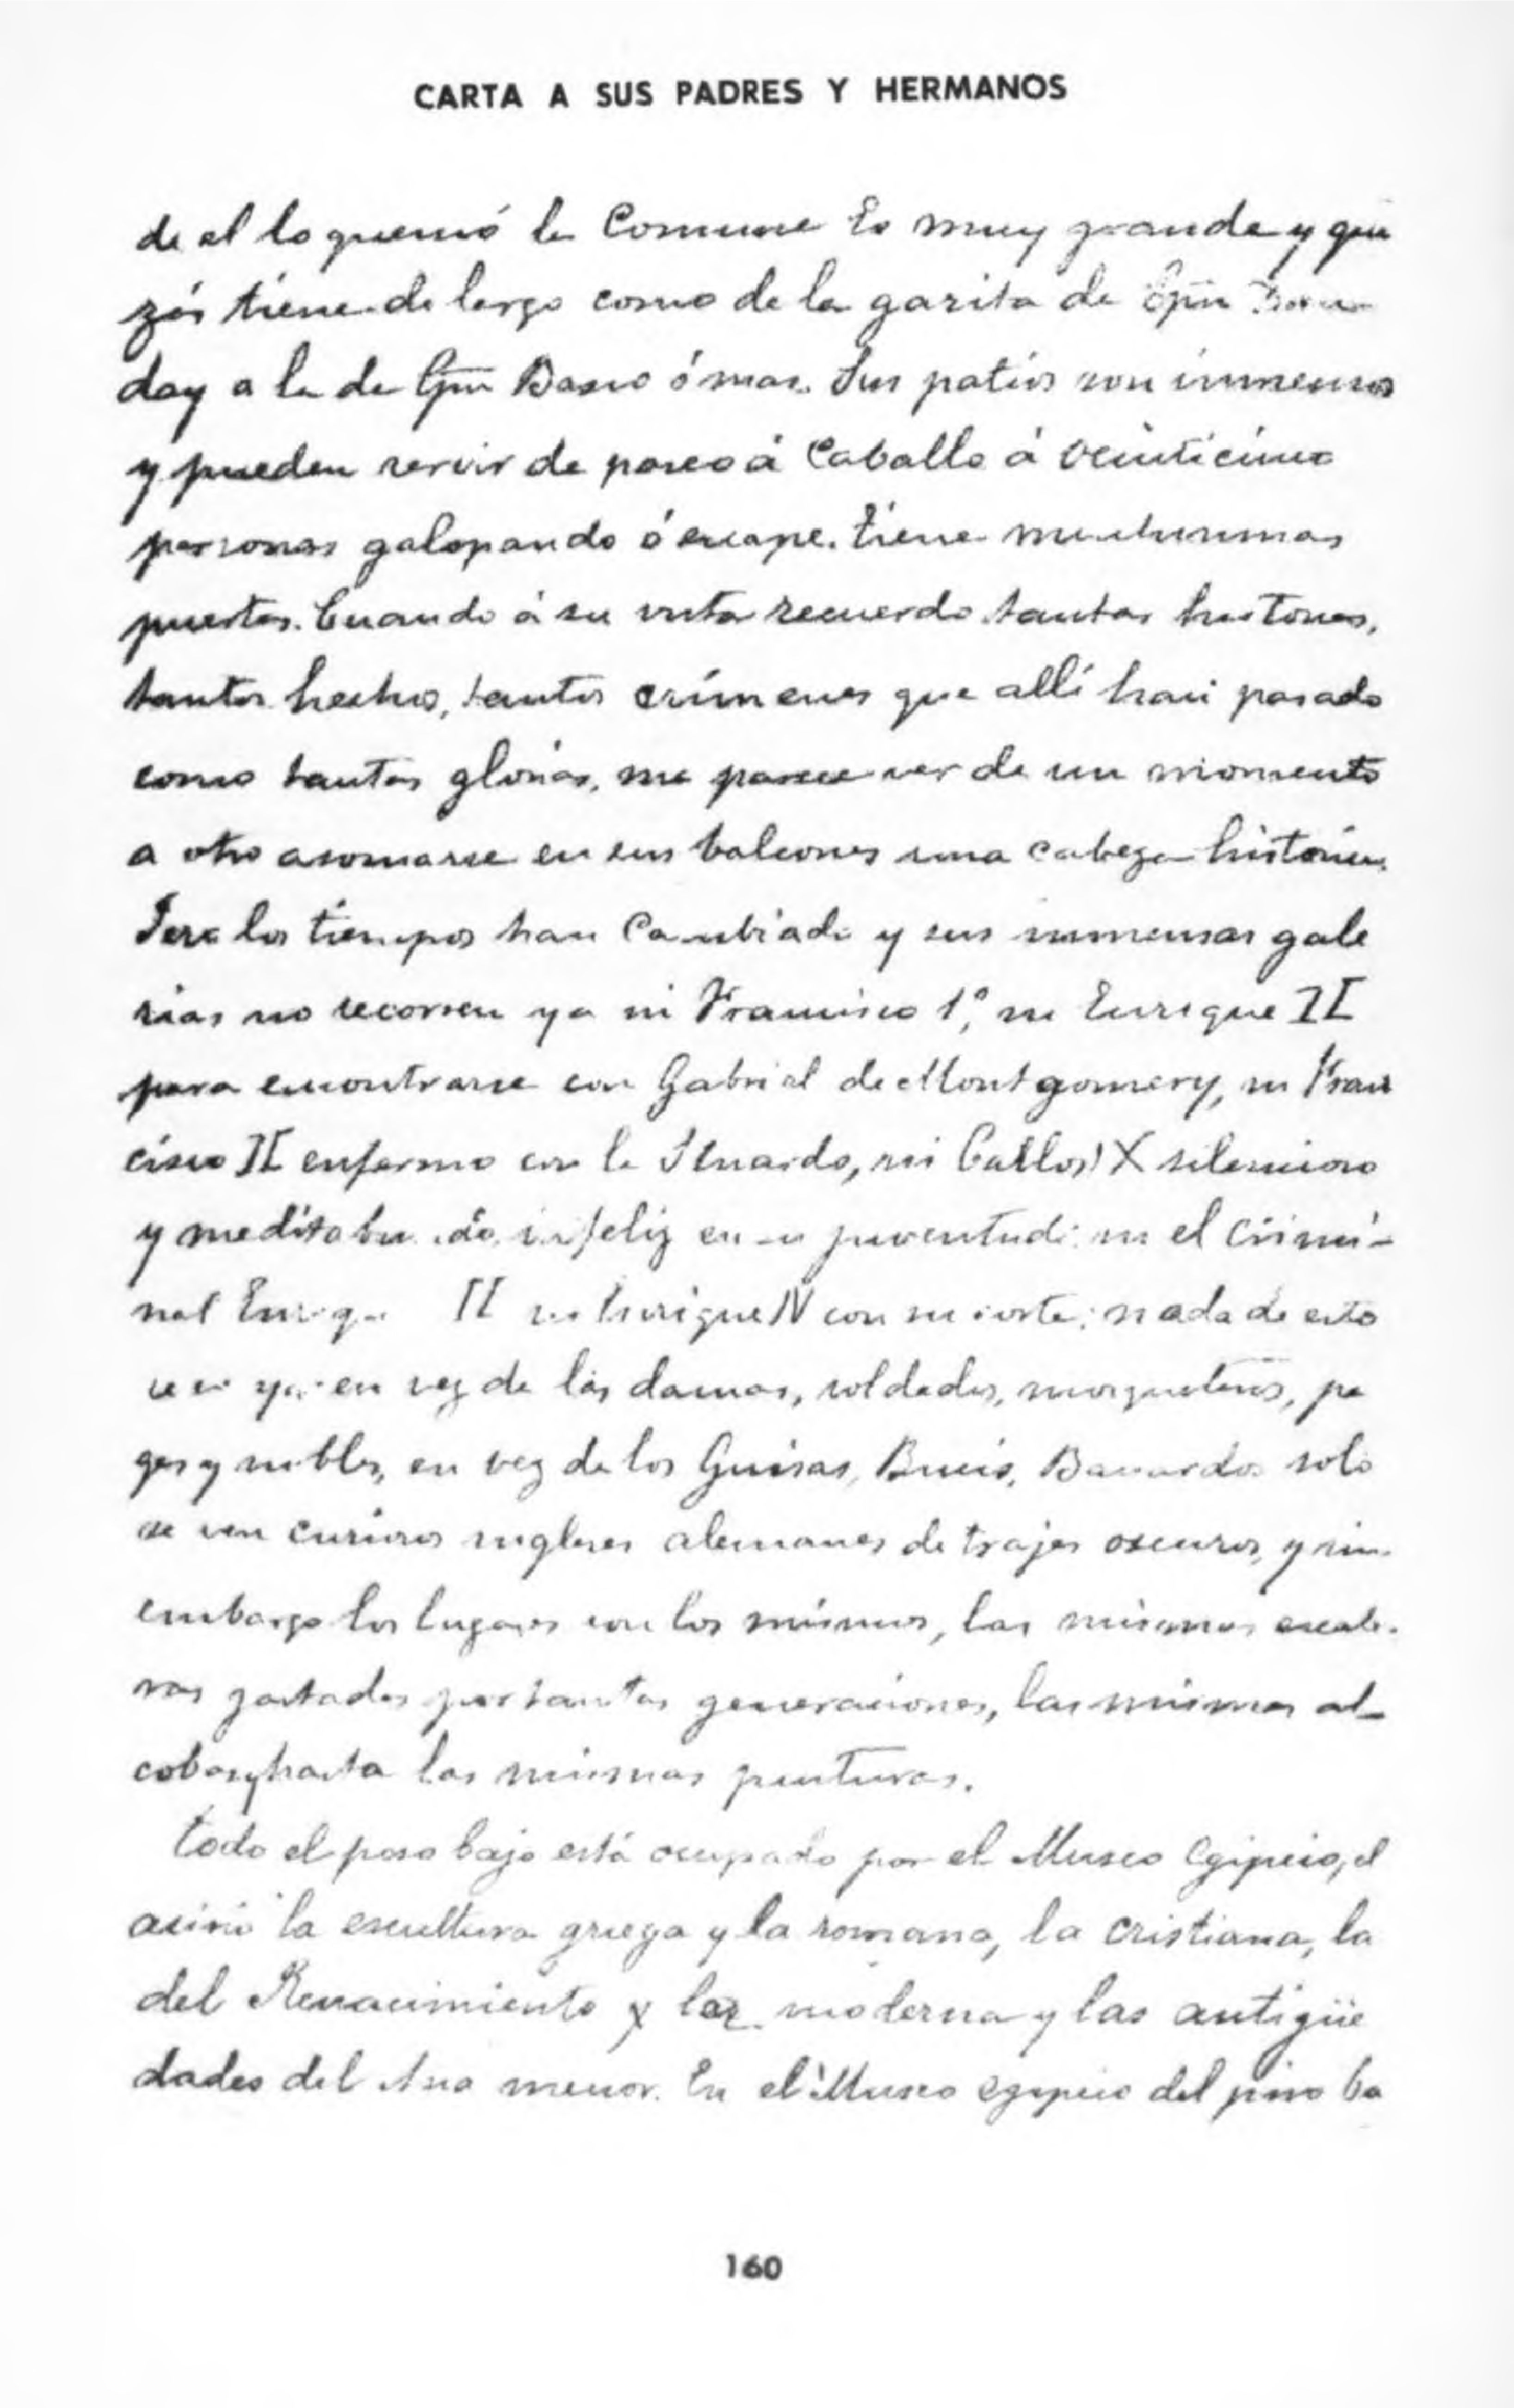 CARTA A SUS PADRES Y HERMANOS
de el lo quemó la Comune Es muy grande y qui
zás tiene de largo como de la garita de Cpn
day a la de Cpn Basio ó mas. Sus patios son inmensos
y pueden servir de paseo á Caballo á veinticinco
personas galopando ó escape. tiene muchisimas
puertas. Cuando á su vista recuerdo tantas historias,
tantos hechos, tantos crímenes que allí han pasado
como tantas glorias, me parece ver de un momento
a otro asomarse en sus balcones una cabeza histórica.
Pero los tiempos han Cambiado y sus inmensas gale
rias no recorren ya ni Francisco 1º, ni Enrique II
para encontrarse con Gabriel de Montgomery, ni Fran
cisco II enfermo con la Stuardo, ni Carlos IX silencioso
y meditabundo, infeliz en su juventud; ni el Crimi-
nal Enrique II ni Enrique IV con su corte; nada de esto
se ve ya; en vez de las damas, soldados, mosqueteros, pa
ges y nobles, en vez de los Guisas, Bucis, Bayardos solo
se ven curiosos ingleses alemanes de trajes oscuros, y sin
embargo los lugares son los mismos, las mismas escale-
ras gastadas por tantas generaciones, las mismas al-
cobas y hasta las mismas pinturas.
todo el piso bajo está ocupado por el Museo Egipcio, el
asirio la escultura griega y la romana, la cristiana, la
del Renacimiento y la moderna y las antigüe
dades del Asia menor. En el Museo egipcio del piso ba
160